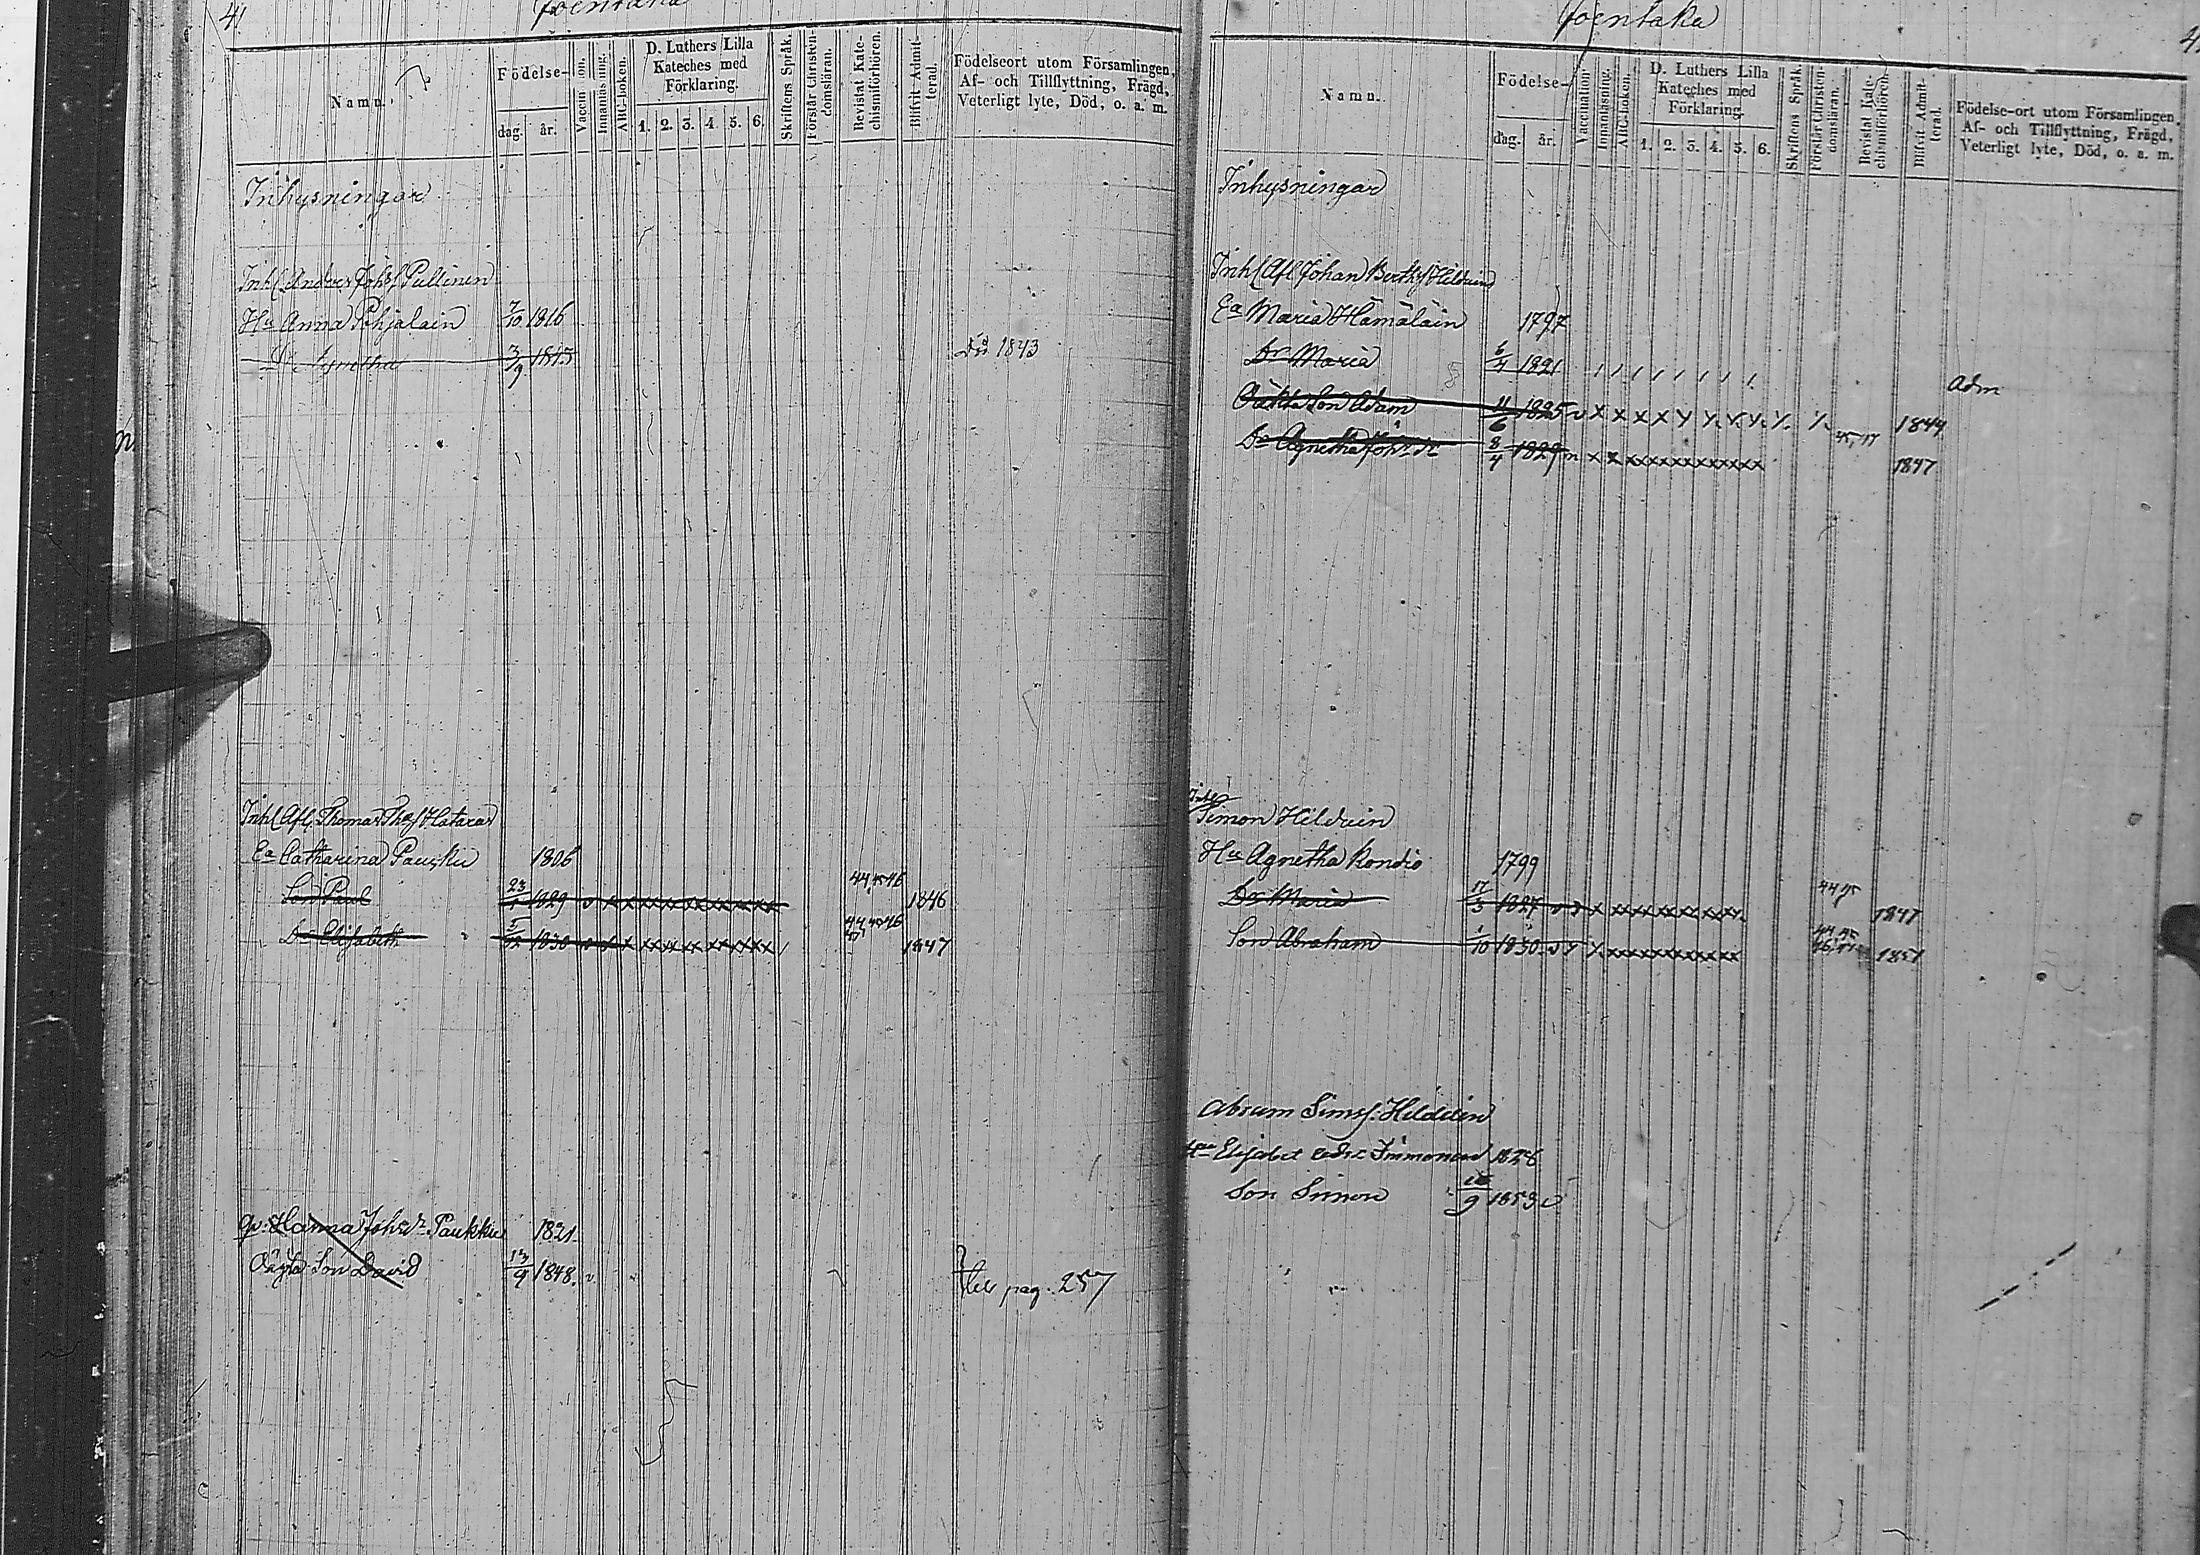 41
Joentaka
Namn.
Födelse-
dag. år.
Vaccination.
Innanläsning.
ABC-boken.
D. Luthers Lilla
Kateches med
Förklaring.
1. 2. 3. 4. 5. 6.
Skriftens Språk.
Förstår Christen-
domsläran.
Bevistat Kate-
chismiförhören.
Blifvit Admit-
terad.
Födelseort utom Församlingen,
Af- och Tillflyttning, Frägd,
Veterligt lyte, Död, o. a. m.
Inhysningar
Inh. Anders Johs. Pullinen
Hu Anna Pohjalain 7/10 1816
Dr Agnetha 3/9 1843 Död 1843
Inh. Afl. Thomas Ths. Hatara
Ea Catharina Paukku 1806
Son Paul 23 1829 v x x x x x x x x x 44 45 46 1846
Dr Elisabeth 1830 44, 45 46 47 1847
qv. Hanna Johsdr Paukku 1821
Oägta Son David 9 1848. v
Se pag. 257
Joentaka
Namn.
Födelse-
dag. år.
Vaccination
Innanläsning.
ABC-boken.
D. Luthers Lilla
Kateches med
Förklaring.
1. 2. 3. 4. 5. 6.
Skriftens Språk.
Förstår Christen-
domsläran.
Bevistat Kate-
chismiförhören.
Blifvit Admit-
terad.
Födelse-ort utom Församlingen,
Af- och Tillflyttning, Frägd,
Veterligt lyte, Död, o. a. m.
Inhysningar
Inh. Afl. Johan Berths. Hildain
Ea Maria Hämäläin 1797
Dr Maria 6/4 1821 Adm
Oäkta Son Adam 11/6 1825 1844
Dr Agnetha Johsdr 8/4 1829 45, 47 1847
Inh.
Simon Hildain
Hu Agnetha Kondio 1799
Dr Maria 17/3 1827 44 45 1847
Son Abraham 1/10 1830 44, 45 1851
Abram Sims. Hildain
Hu Elisabet Immonen 1826
Son Simon 16/9 1853 v